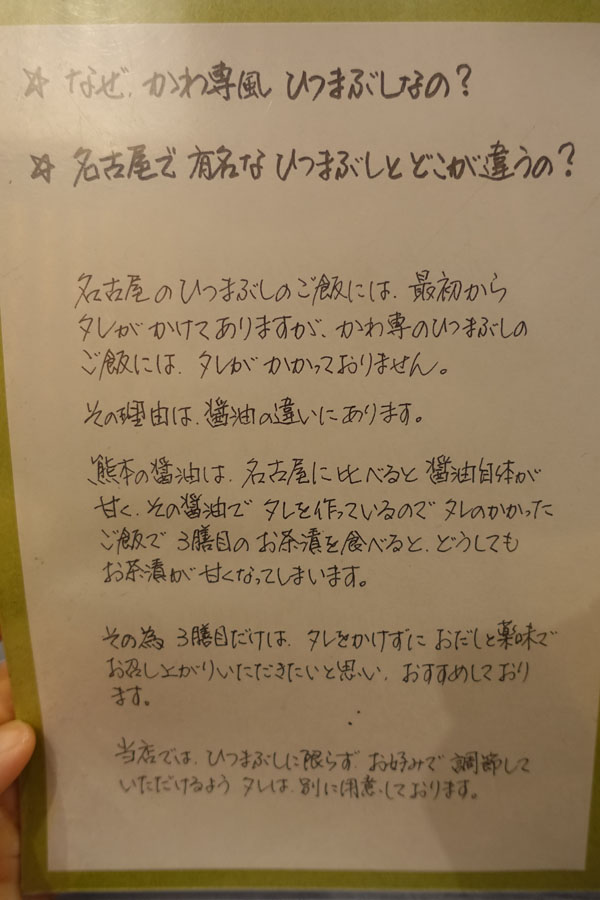 ☆ なぜ、かわ専風 ひつまぶしなの？
☆ 名古屋で 有名な ひつまぶしと どこが違うの？
名古屋のひつまぶしのご飯には、最初から
タレが かけて ありますが、かわ専のひつまぶしの
ご飯には、タレが かかっておりません。
その理由は、醤油の違いにあります。
熊本の醤油は、名古屋に比べると 醤油自体が
甘く、その醤油で タレを作っているので タレのかかった
ご飯で 3膳目の お茶漬を食べると、どうしても
お茶漬が 甘くなってしまいます。
その為 3膳目だけは、タレをかけずに おだしと薬味で
お召し上がりいただきたいと思い、おすすめしており
ます。
当店では、ひつまぶしに限らず お好みで 調節して
いただけるよう タレは、別に用意しております。